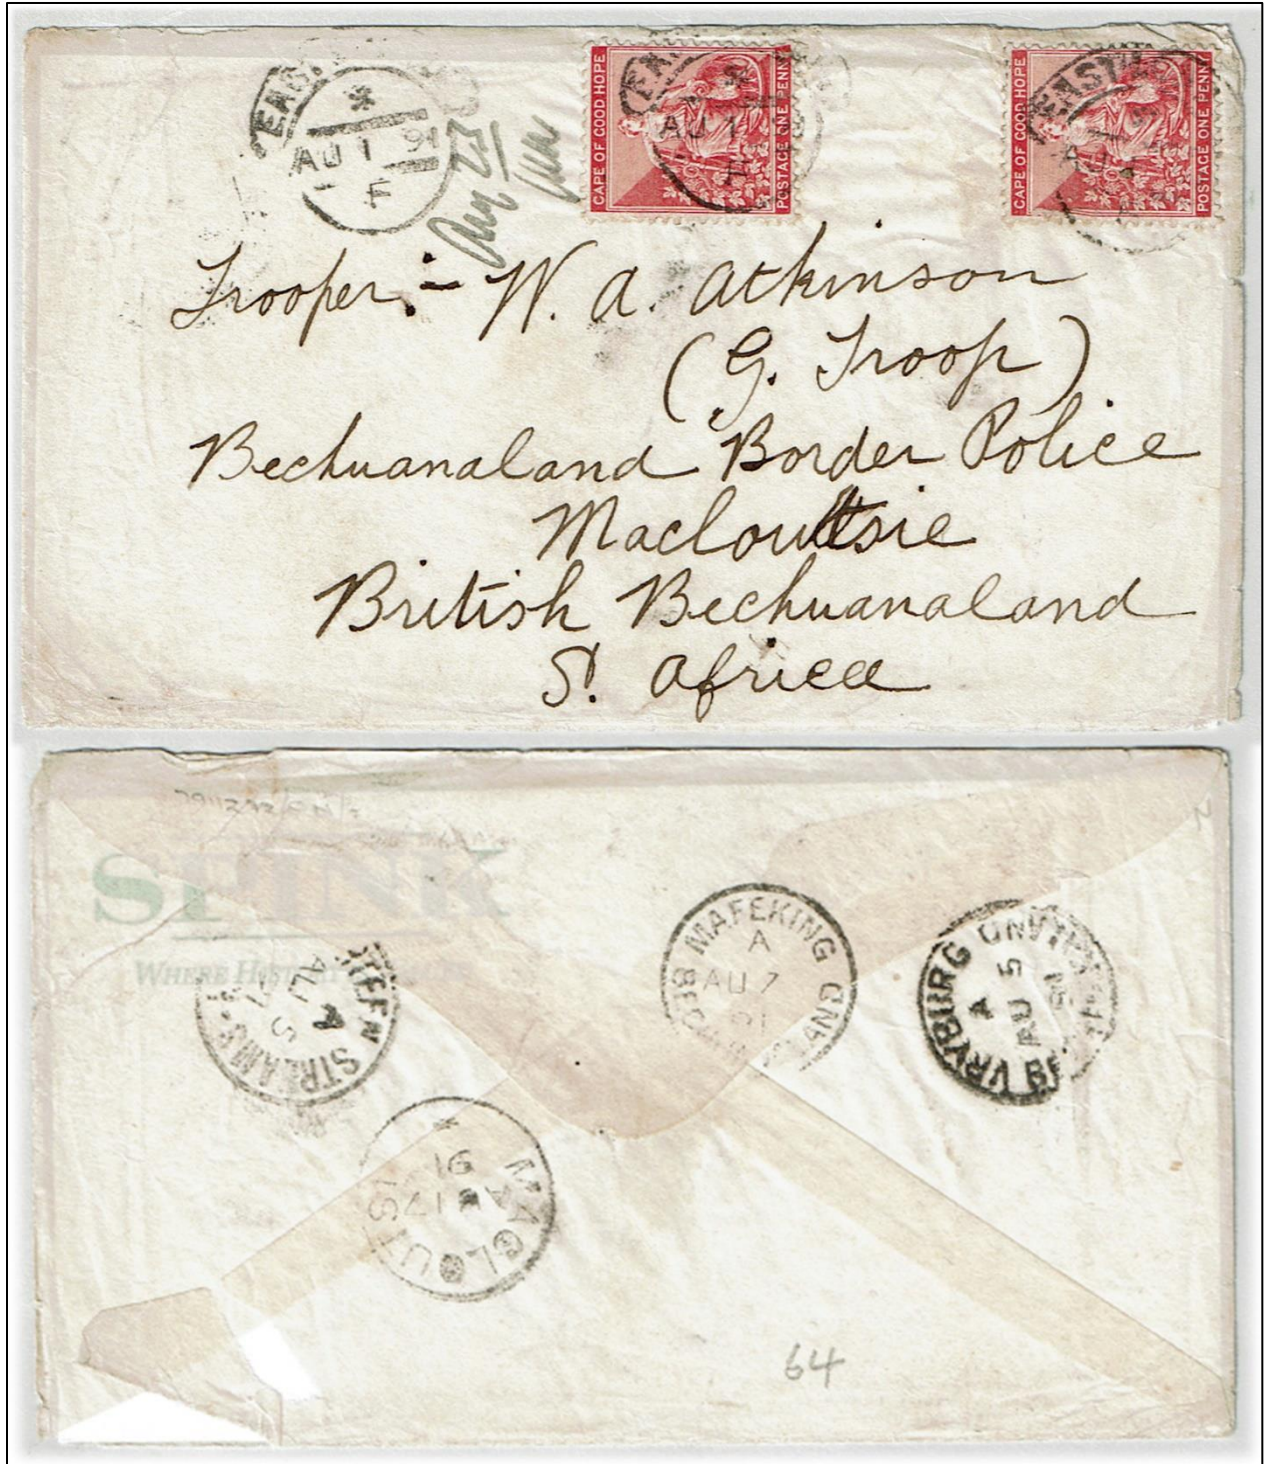 EAST
AU 1 91
F
Aug 23
CAPE OF GOOD HOPE
POSTAGE ONE PENNY
AU 1
CAPE OF GOOD HOPE
POSTAGE ONE PENNY
EAST
Trooper:- W. A. Atkinson
(G. Troop)
Bechuanaland Border Police
Macloutsie
British Bechuanaland
S. Africa
SPINK
WHERE
STREAMS
A
AU 5
MAFEKING
A
AU 7
91
VRYBURG
A
AU 5
91
MACLOUTSI
17
91
64